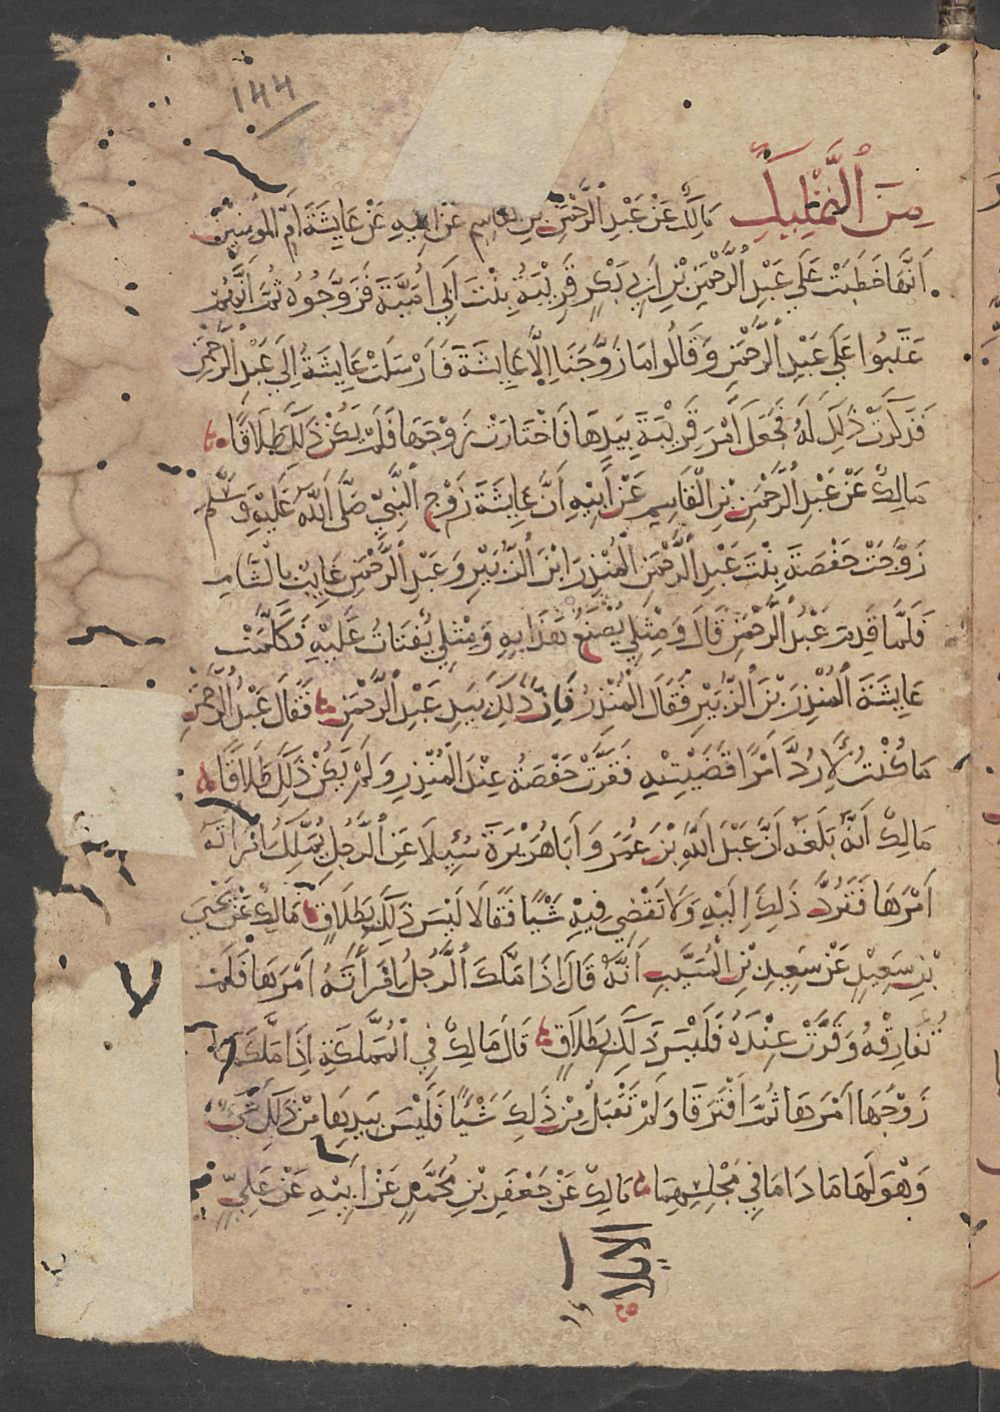 ١٤٤
من التمليك مالك عن عبد الرحمن بن القاسم عن ابيه عن عايشة ام المومنين
انها خطبت على عبد الرحمن بن ابي بكر قريبة بنت ابي امية فزوجوه ثم انهم
عتبوا على عبد الرحمن وقالوا ما زوجنا الا عايشة فارسلت عايشة الى عبد الرحمن
فذكرت ذلك له فجعل امر قريبة بيدها فاختارت زوجها فلم يكن ذلك طلاقا
مالك عن عبد الرحمن بن القاسم عن ابيه ان عايشة زوج النبي صلى الله عليه وسلم
زوجت حفصة بنت عبد الرحمن المنذر ابن الزبير وعبد الرحمن غايب بالشام
فلما قدم عبد الرحمن قال ومثلي يصنع هذا به ومثلي يفتات عليه فكلمت
عايشة المنذر بن الزبير فقال المنذر فان ذلك بيد عبد الرحمن فقال عبد الرحمن
ما كنت لارد امرا قضيتيه فقرت حفصة عند المنذر ولم يكن ذلك طلاقا
مالك انه بلغه ان عبد الله بن عمر وابا هريرة سئلا عن الرجل يملك امراته
امرها فترد ذلك اليه ولا تقضي فيه شيا فقالا ليس ذلك بطلاق مالك عن يحيى
بن سعيد عن سعيد بن المسيب انه قال اذا ملك الرجل امراته امرها فلم
تفارقه وقرت عنده فليس ذلك بطلاق قال مالك في المملكة اذا ملكها
زوجها امرها ثم افترقا ولم تقبل من ذلك شيا فليس بيدها من ذلك شيء
وهو لها ما داما في مجلسهما مالك عن جعفر بن محمد عن ابيه عن علي
الايلا